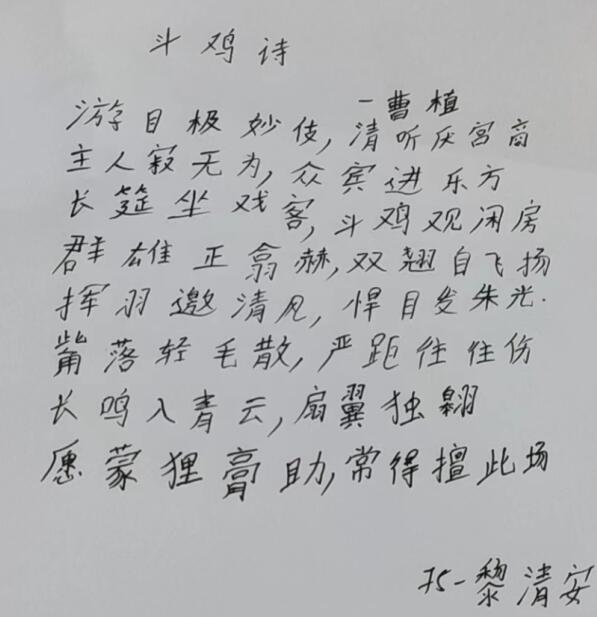 斗鸡诗
一曹植
游目极妙伎,清听厌宫商
主人寂无为,众宾进乐方
长筵坐戏客,斗鸡观闲房
群雄正翕赫,双翘自飞扬
挥羽邀清风,悍目发朱光.
觜落轻毛散,严距往往伤
长鸣入青云,扇翼独翱
愿蒙狸膏助,常得擅此场
75-黎清安